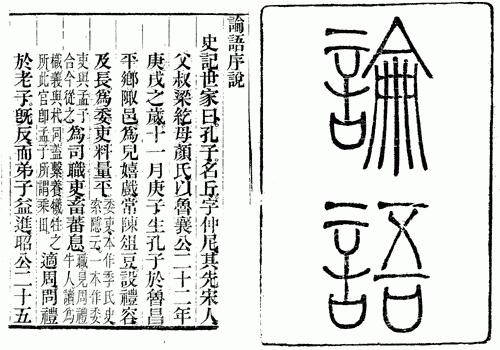 論語
論語序說
史記世家曰孔子名丘字仲尼其先宋人
父叔梁紇母顏氏以魯襄公二十二年
庚戌之歲十一月庚子生孔子於魯昌
平鄉陬邑爲兒嬉戲常陳俎豆設禮容
及長爲委吏料量平委吏本作季氏史索隱云一本作委
吏與孟子合今從之爲司職吏畜蕃息職見周禮牛人讀爲
樴義與杙同蓋繫養犧牲之所此官卽孟子所謂乘田適周問禮
於老子既反而弟子益進昭公二十五